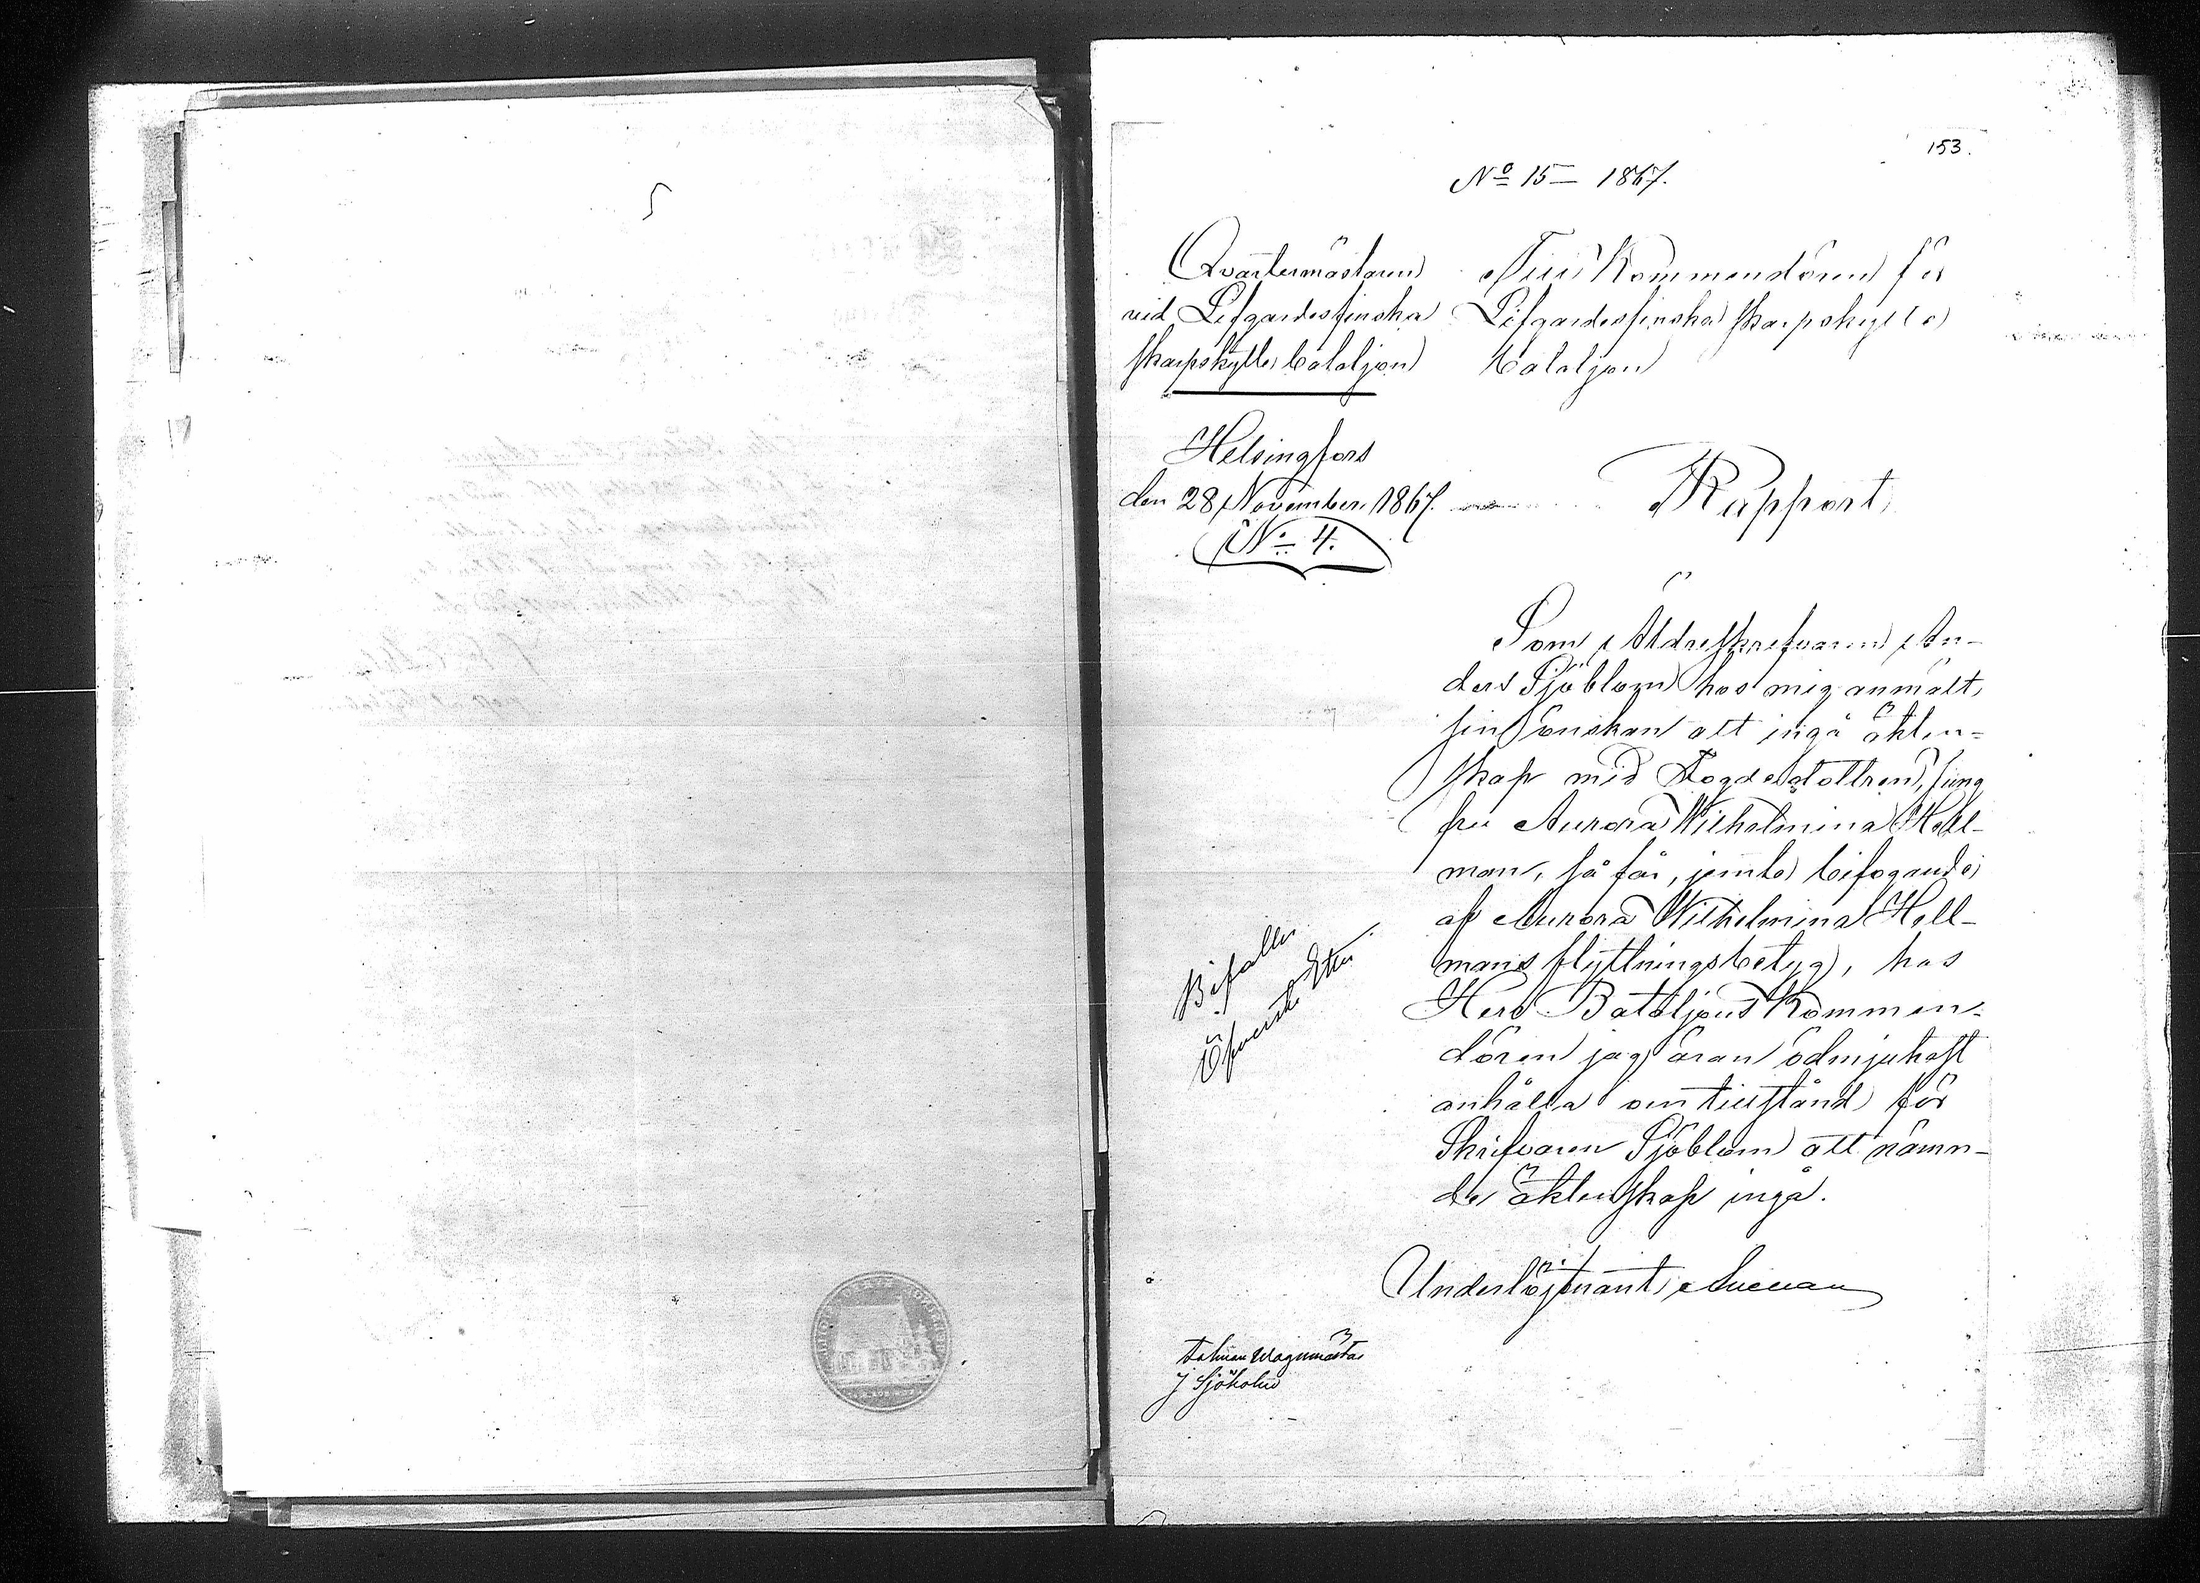 153.
No 15 — 1867.
Qvartermästaren
vid Lifgardesfinska
skarpskytte bataljon
Till Kommendören för
Lifgardesfinska skarpskytte
bataljon
Helsingfors
den 28 November 1867.
No 4.
Rapport
Som Äldreskrifvaren An-
ders Sjöblom hos mig anmält
sin önskan att ingå äkten-
skap med Fogdedottren, jung
fru Aurora Wilhelmina Hell-
man, så får, jemte bifogande
af Aurora Wilhelmina Hell-
mans flyttningsbetyg, hos
Herr Bataljons Kommen-
dören jag äran ödmjukast
anhålla om tillstånd för
Skrifvaren Sjöblom att nämn-
de äktenskap ingå.
Bifalles
Öfverste
Underlöjtenant
J Sjöholm